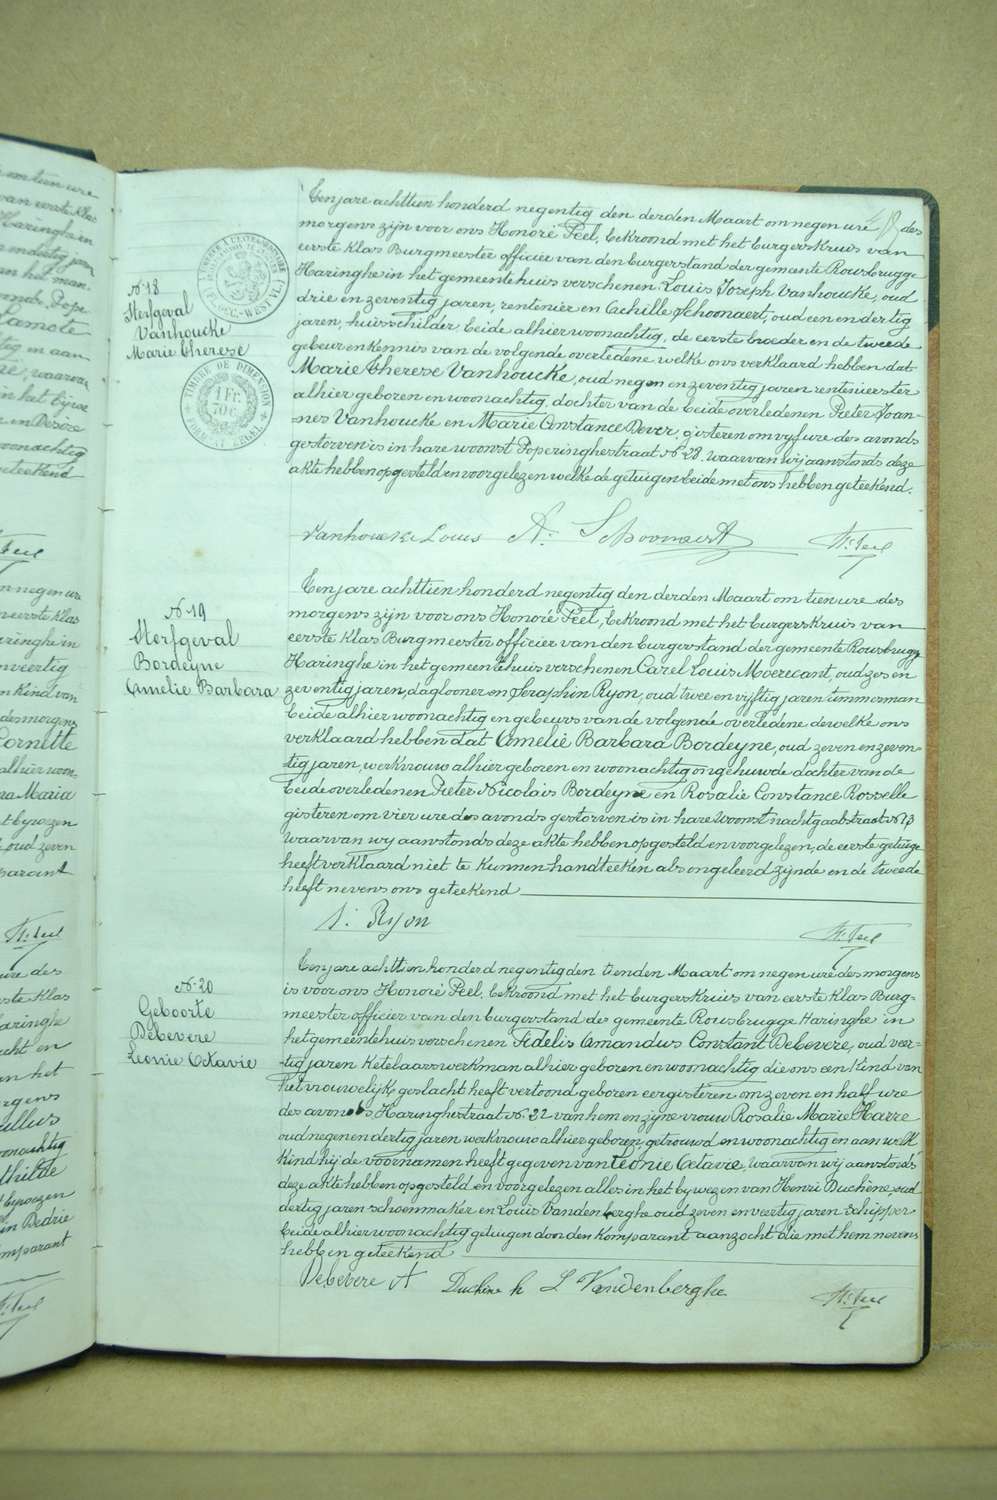 Ten jare achttien honderd negentig den derden Maart om negen ure des
morgens zijn voor ons Honoré Peel, bekroond met het burgerskruis van
eerste klas Burgmeester officier van den burgerstand der gemeente Rousbrugge
Haringhe in het gemeentehuis verschenen Louis Joseph Vanhoucke, oud
drie en zeventig jaren, rentenier en Achille Schoonaert, oud een en dertig
jaren, huisschilder beide alhier woonachtig, de eerste broeder en de tweede
gebuer en kennis van de volgende overledene welke ons verklaard hebben dat
Marie Therese Vanhoucke, oud negen en zeventig jaren rentenierster
alhier geboren en woonachtig, dochter van de beide overledenen Pieter Joan-
nes Vanhoucke en Marie Constance Dever, gisteren om vyf ure des avonds
gestorven is in hare woonst Poperinghestraat No 28. waarvan wij aanstonds deze
akte hebben opgesteld en voorgelezen welke de getuigen beide met ons hebben geteekend.
No 18
Sterfgeval
Vanhoucke
Marie Therese
TIMBRE DE DIMENSION
1 Fr.
70 c.
FORMAAT ZEGEL
Vanhoucke Louis A. Schoonaert H. Peel
No 19
Sterfgeval
Bordeyne
Amelie Barbara
Ten jare achttien honderd negentig den derden Maart om tien ure des
morgens zijn voor ons Honoré Peel, bekroond met het burgerskruis van
eerste klas Burgmeester officier van den burgerstand der gemeente Rousbrugge
Haringhe in het gemeentehuis verschenen Carel Louis Moerecant, oud zes en
zeventig jaren, daglooner en Seraphin Ryon, oud twee en vijftig jaren timmerman
beide alhier woonachtig en gebeurs van de volgende overledene dewelke ons
verklaard hebben dat Amelie Barbara Bordeyne, oud zeven en zeven-
tig jaren, werkvrouw alhier geboren en woonachtig ongehuwde dochter van de
beide overledenen Pieter Nicolais Bordeyne en Rosalie Constance Rosselle
gisteren om vier ure des avonds gestorven is in hare woonst nachtgaalstraat No 13
waarvan wij aanstonds deze akte hebben opgesteld en voorgelezen, de eerste getuige
heeft verklaard niet te kunnen handteeken als ongeleerd zijnde en de tweede
heeft nevens ons geteekend
S. Ryon H. Peel
No 20
Geboorte
Debevere
Leonie Octavie
Ten jare achttien honderd negentig den tienden Maart om negen ure des morgens
is voor ons Honoré Peel, bekroond met het burgerskruis van eerste klas Burg-
meester officier van den burgerstand des gemeente Rousbrugge Haringhe in
het gemeentehuis verschenen Fidelis Amandus Constant Debevere, oud veer-
tig jaren Ketelaarswerkman alhier geboren en woonachtig die ons een kind van
het vrouwelijk geslacht heeft vertoond geboren eergisteren om zeven en half ure
des avonds Haringhestraat No 22 van hem en zijne vrouw Rosalie Marie Harre
oud negen en dertig jaren werkvrouw alhier geboren, getrouwd en woonachtig en aan welk
kind hij de voornamen heeft gegeven van Leonie Octavie, waarvan wij aanstonds
deze akte hebben opgesteld en voorgelezen alles in het bywezen van Henri Duchène, oud
dertig jaren schoenmaker en Louis Vandenberghe oud zeven en veertig jaren schipper
beide alhier woonachtig getuigen door den Komparant aanzocht die met hem nevens
hebben geteekend
Debevere A Duchène h L Vandenberghe H. Peel